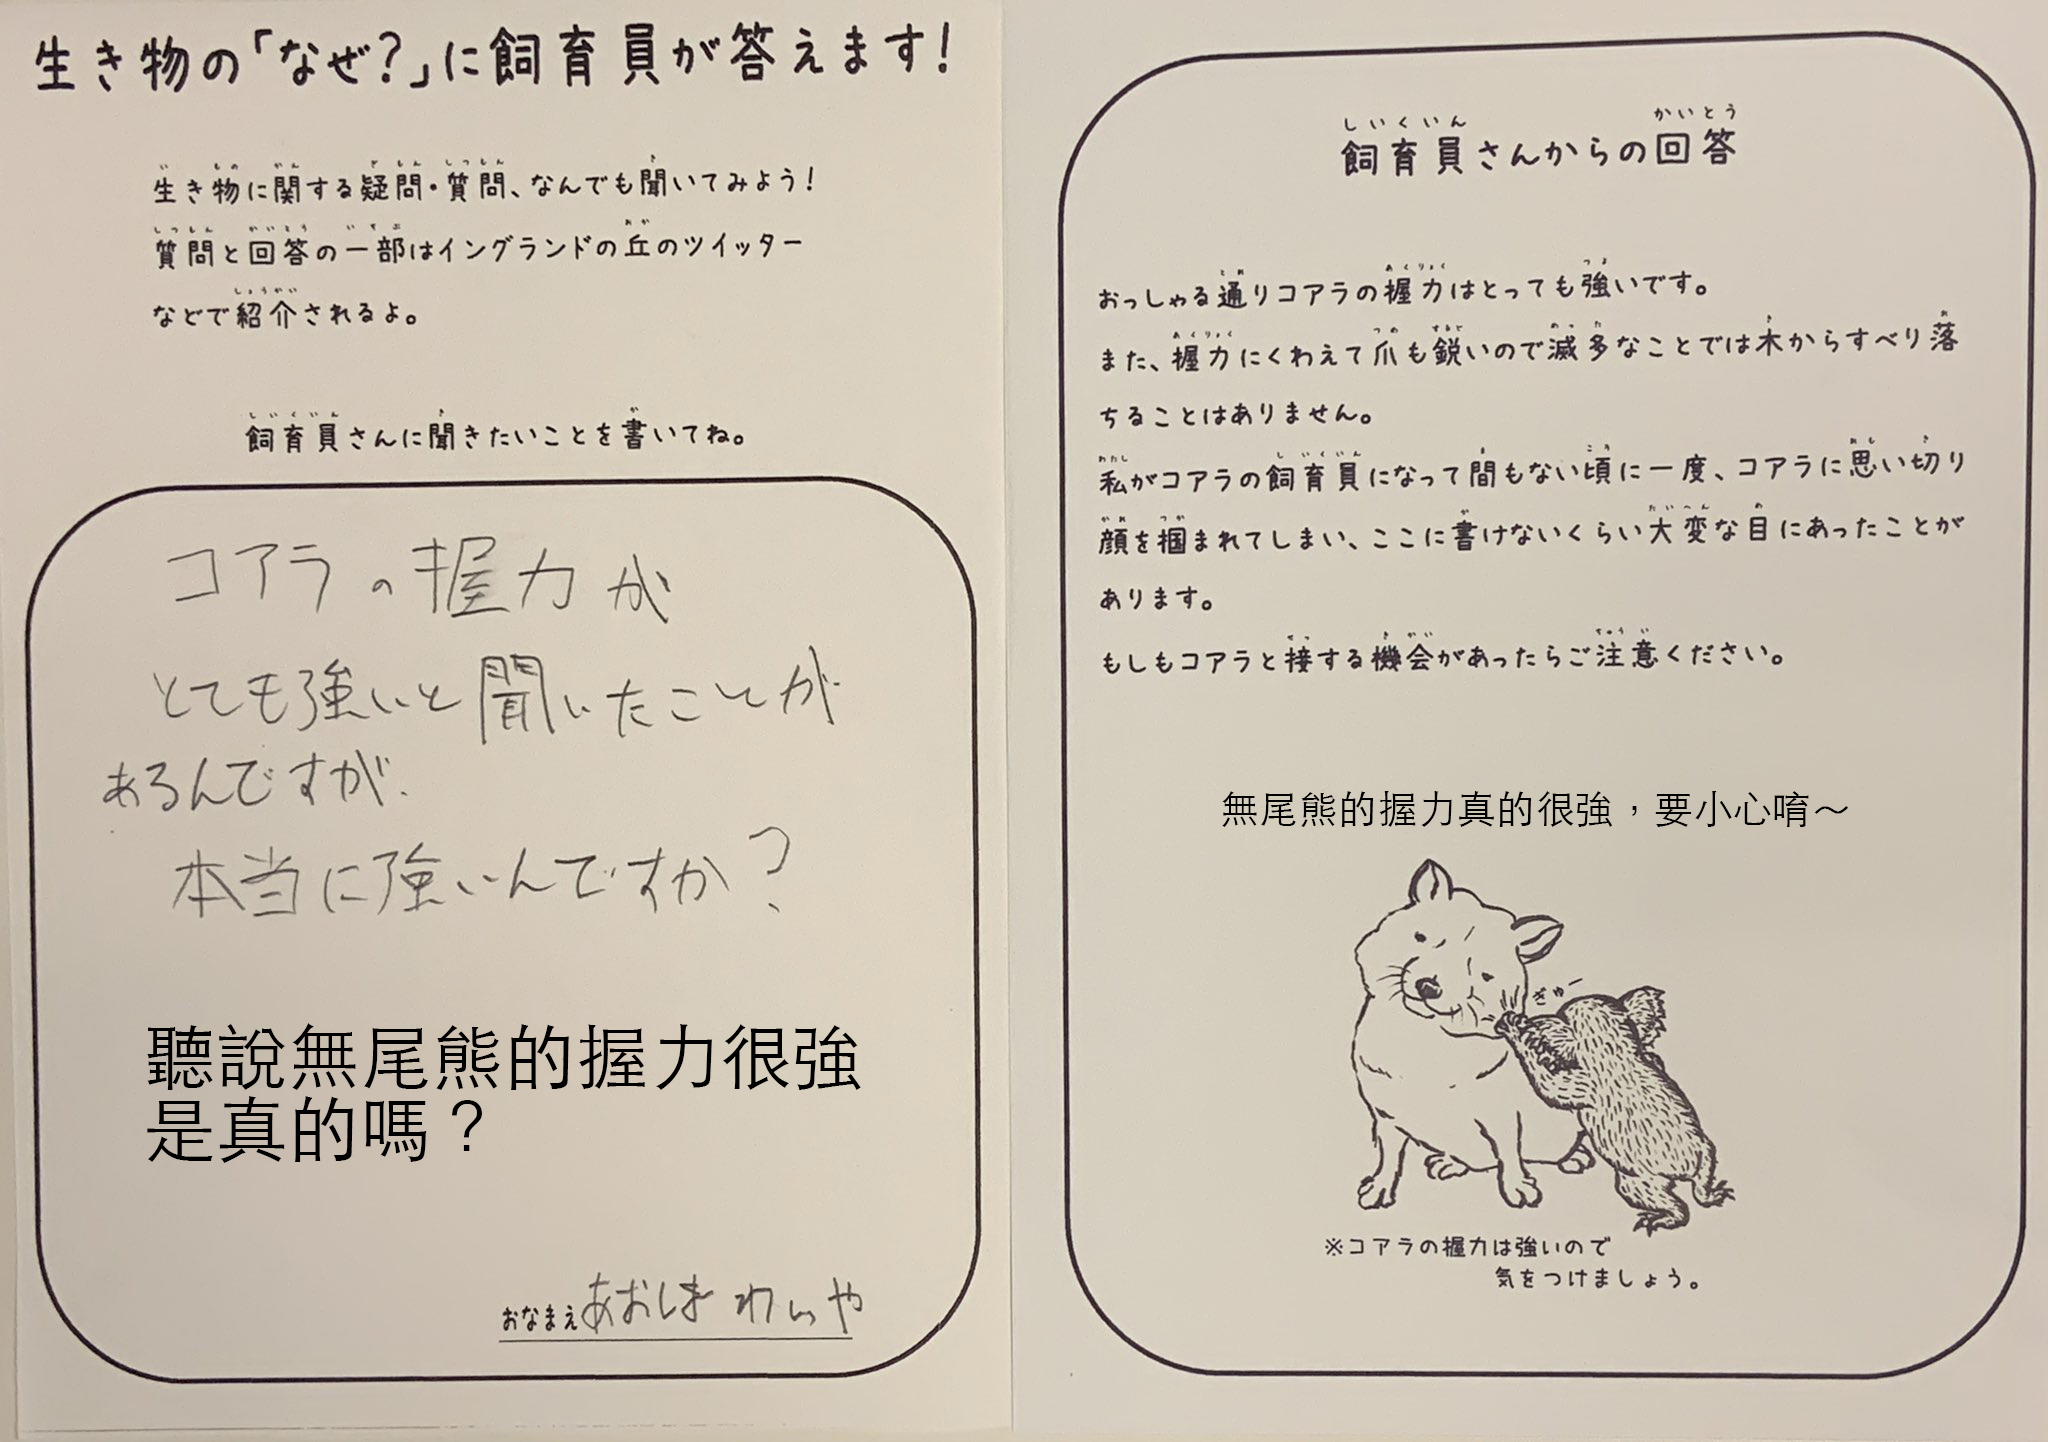 生き物の「なぜ?」に飼育員が答えます!
生き物に関する疑問・質問、なんでも聞いてみよう!
質問と回答の一部はイングランドの丘のツイッター
などで紹介されるよ。
飼育員さんに聞きたいことを書いてね。
コアラの握力が
とても強いと聞いたことが
あるんですが、
本当に強いんですか?
聽說無尾熊的握力很強
是真的嗎？
おなまえ あおしま わいや
しいくいん かいとう
飼育員さんからの回答
おっしゃる通りコアラの握力はとっても強いです。
また、握力にくわえて爪も鋭いので滅多なことでは木からすべり落
ちることはありません。
私がコアラの飼育員になって間もない頃に一度、コアラに思い切り
顔を掴まれてしまい、ここに書けないくらい大変な目にあったことが
あります。
もしもコアラと接する機会があったらご注意ください。
無尾熊的握力真的很強，要小心唷～
ぎゅー
※コアラの握力は強いので
気をつけましょう。